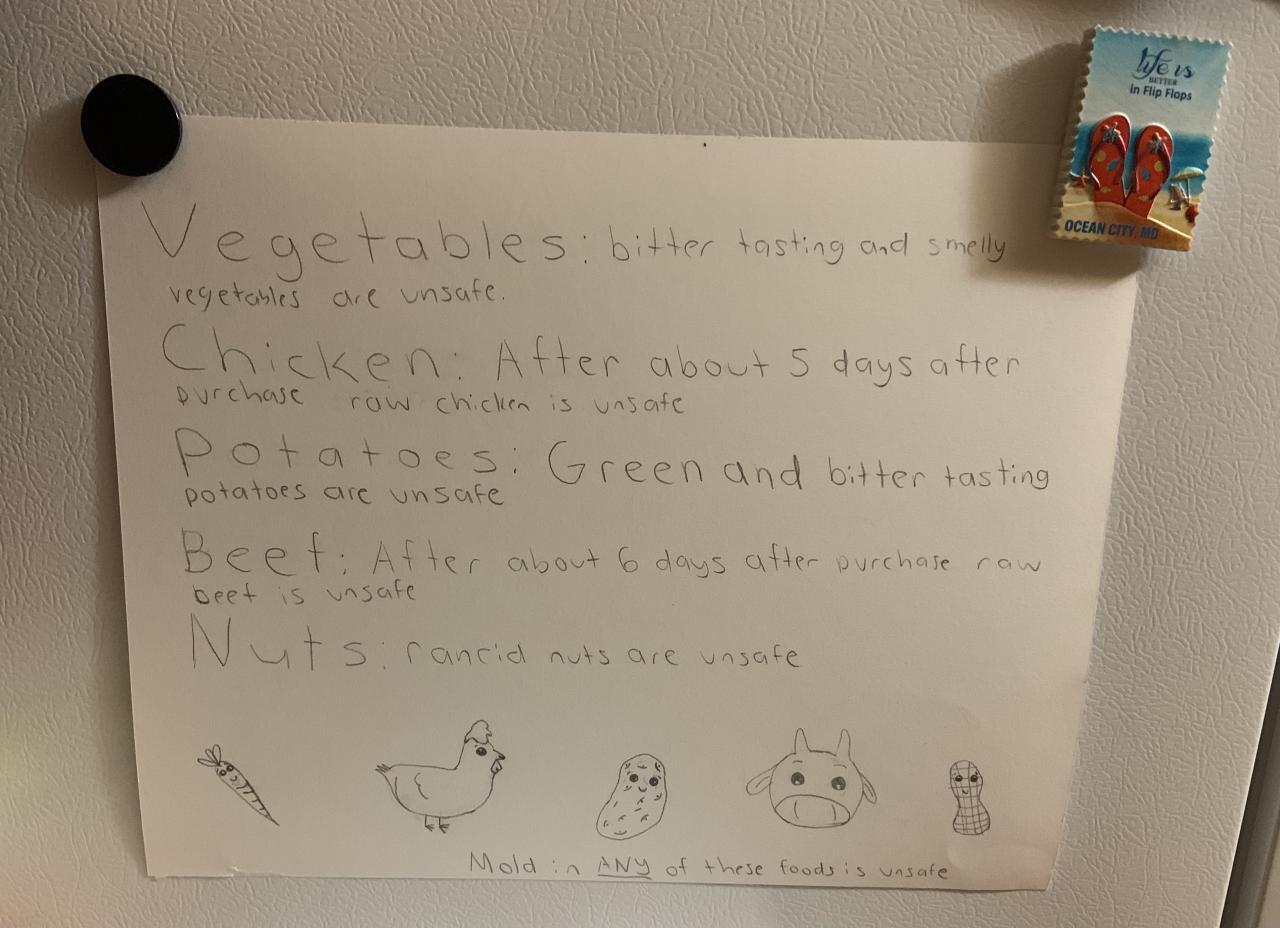 life is
BETTER
in Flip Flops
OCEAN CITY, MD
Vegetables: bitter tasting and smelly
vegetables are unsafe.
Chicken: After about 5 days after
purchase raw chicken is unsafe
Potatoes: Green and bitter tasting
potatoes are unsafe
Beef: After about 6 days after purchase raw
beef is unsafe
Nuts: rancid nuts are unsafe
Mold in ANY of these foods is unsafe